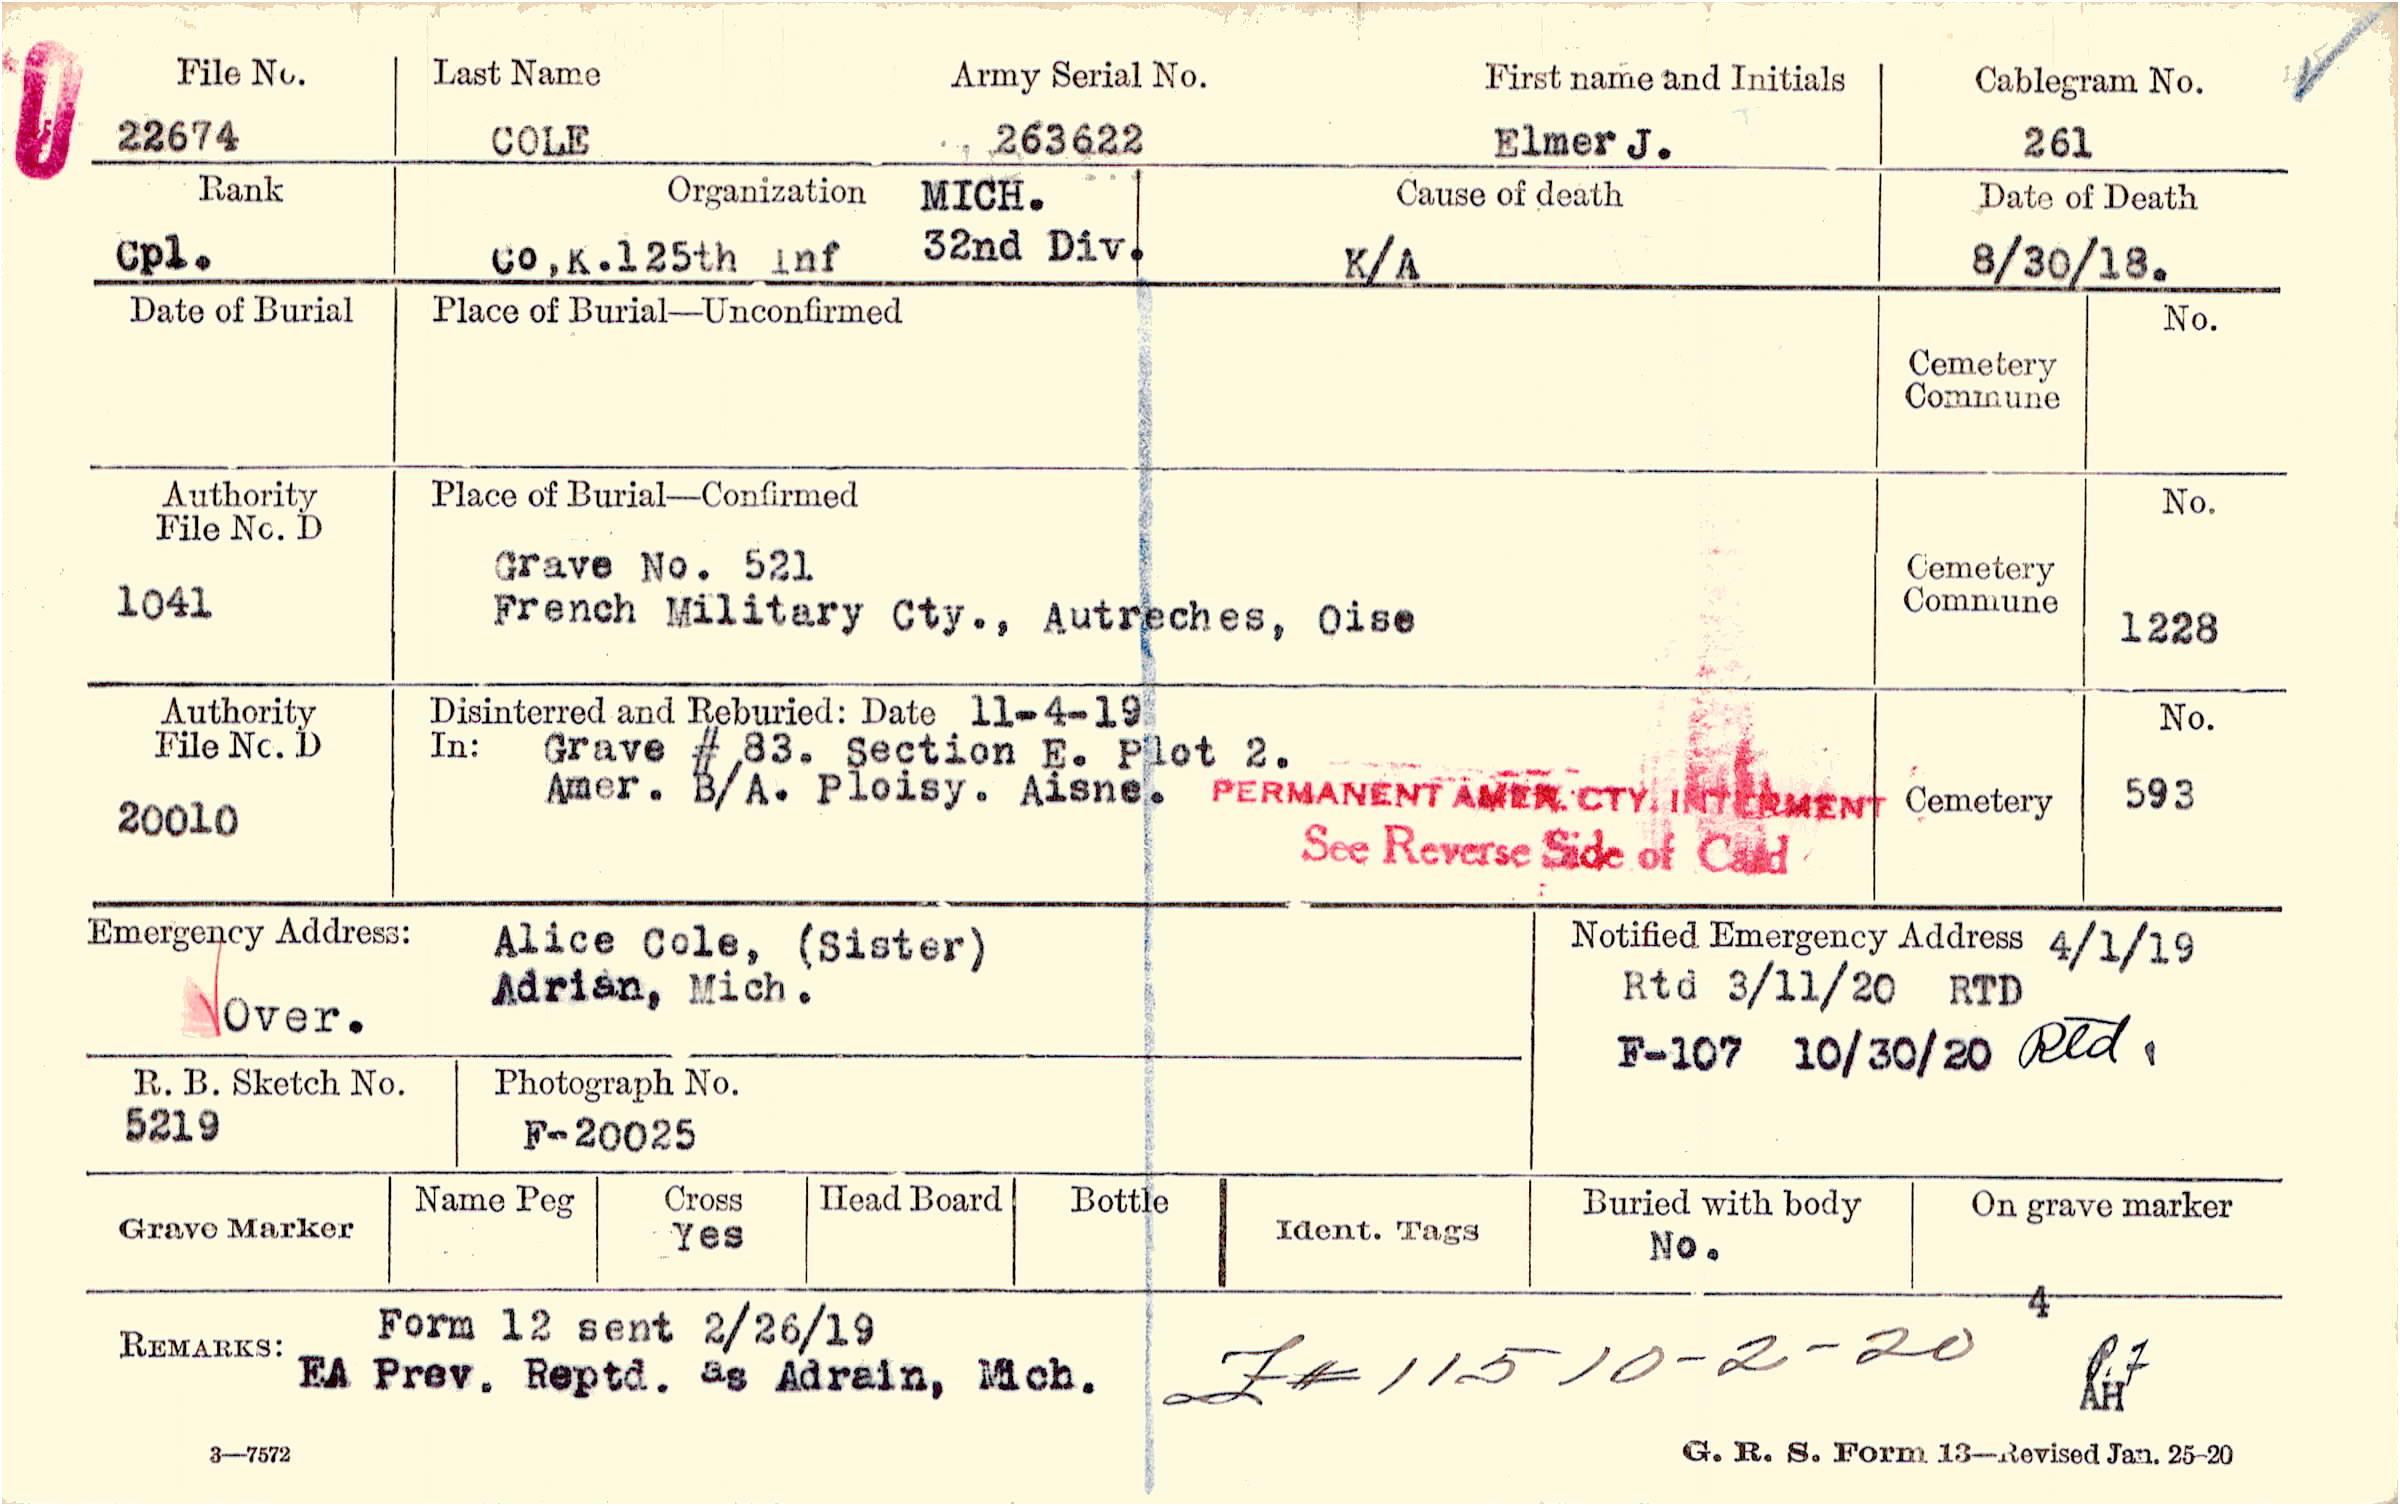 File No. Last Name Army Serial No. First name and Initials Cablegram No.
22674 COLE 263622 Elmer J. 261
Rank Organization MICH. Cause of death Date of Death
Cpl. Co,K.125th Inf 32nd Div. K/A 8/30/18.
Date of Burial Place of Burial—Unconfirmed No.
Cemetery
Commune
Authority Place of Burial—Confirmed No.
File No. D
Grave No. 521
Cemetery
1041 French Military Cty., Autreches, Oise Commune 1228
Authority Disinterred and Reburied: Date 11-4-19 No.
File No. D In: Grave # 83. Section E. Plot 2.
Amer. B/A. Ploisy. Aisne. PERMANENT AMER. CTY. INTERMENT Cemetery 593
20010 See Reverse Side of Card
Emergency Address: Alice Cole, (Sister) Notified Emergency Address 4/1/19
Adrian, Mich. Rtd 3/11/20 RTD
Over.
F-107 10/30/20 Rtd.
R. B. Sketch No. Photograph No.
5219 F-20025
Name Peg Cross Head Board Bottle Buried with body On grave marker
Grave Marker Yes Ident. Tags No.
4
Form 12 sent 2/26/19
REMARKS: EA Prev. Reptd. as Adrain, Mich. # 115 10-2-20
AH
3—7572 G. R. S. Form 13—Revised Jan. 25-20